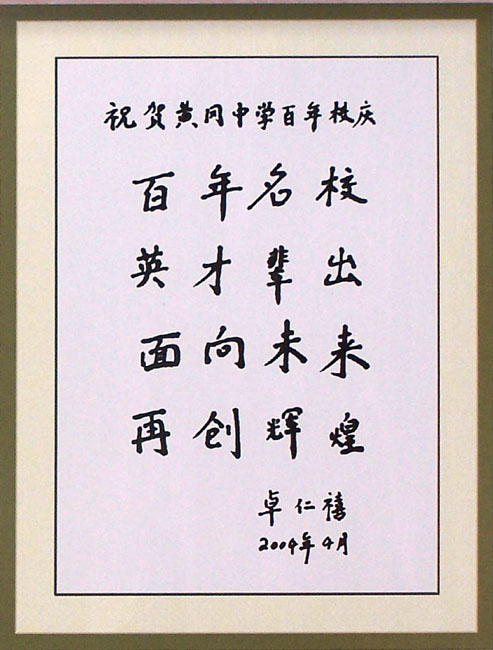 祝贺黄冈中学百年校庆
百年名校
英才辈出
面向未来
再创辉煌
卓仁禧
2004年4月